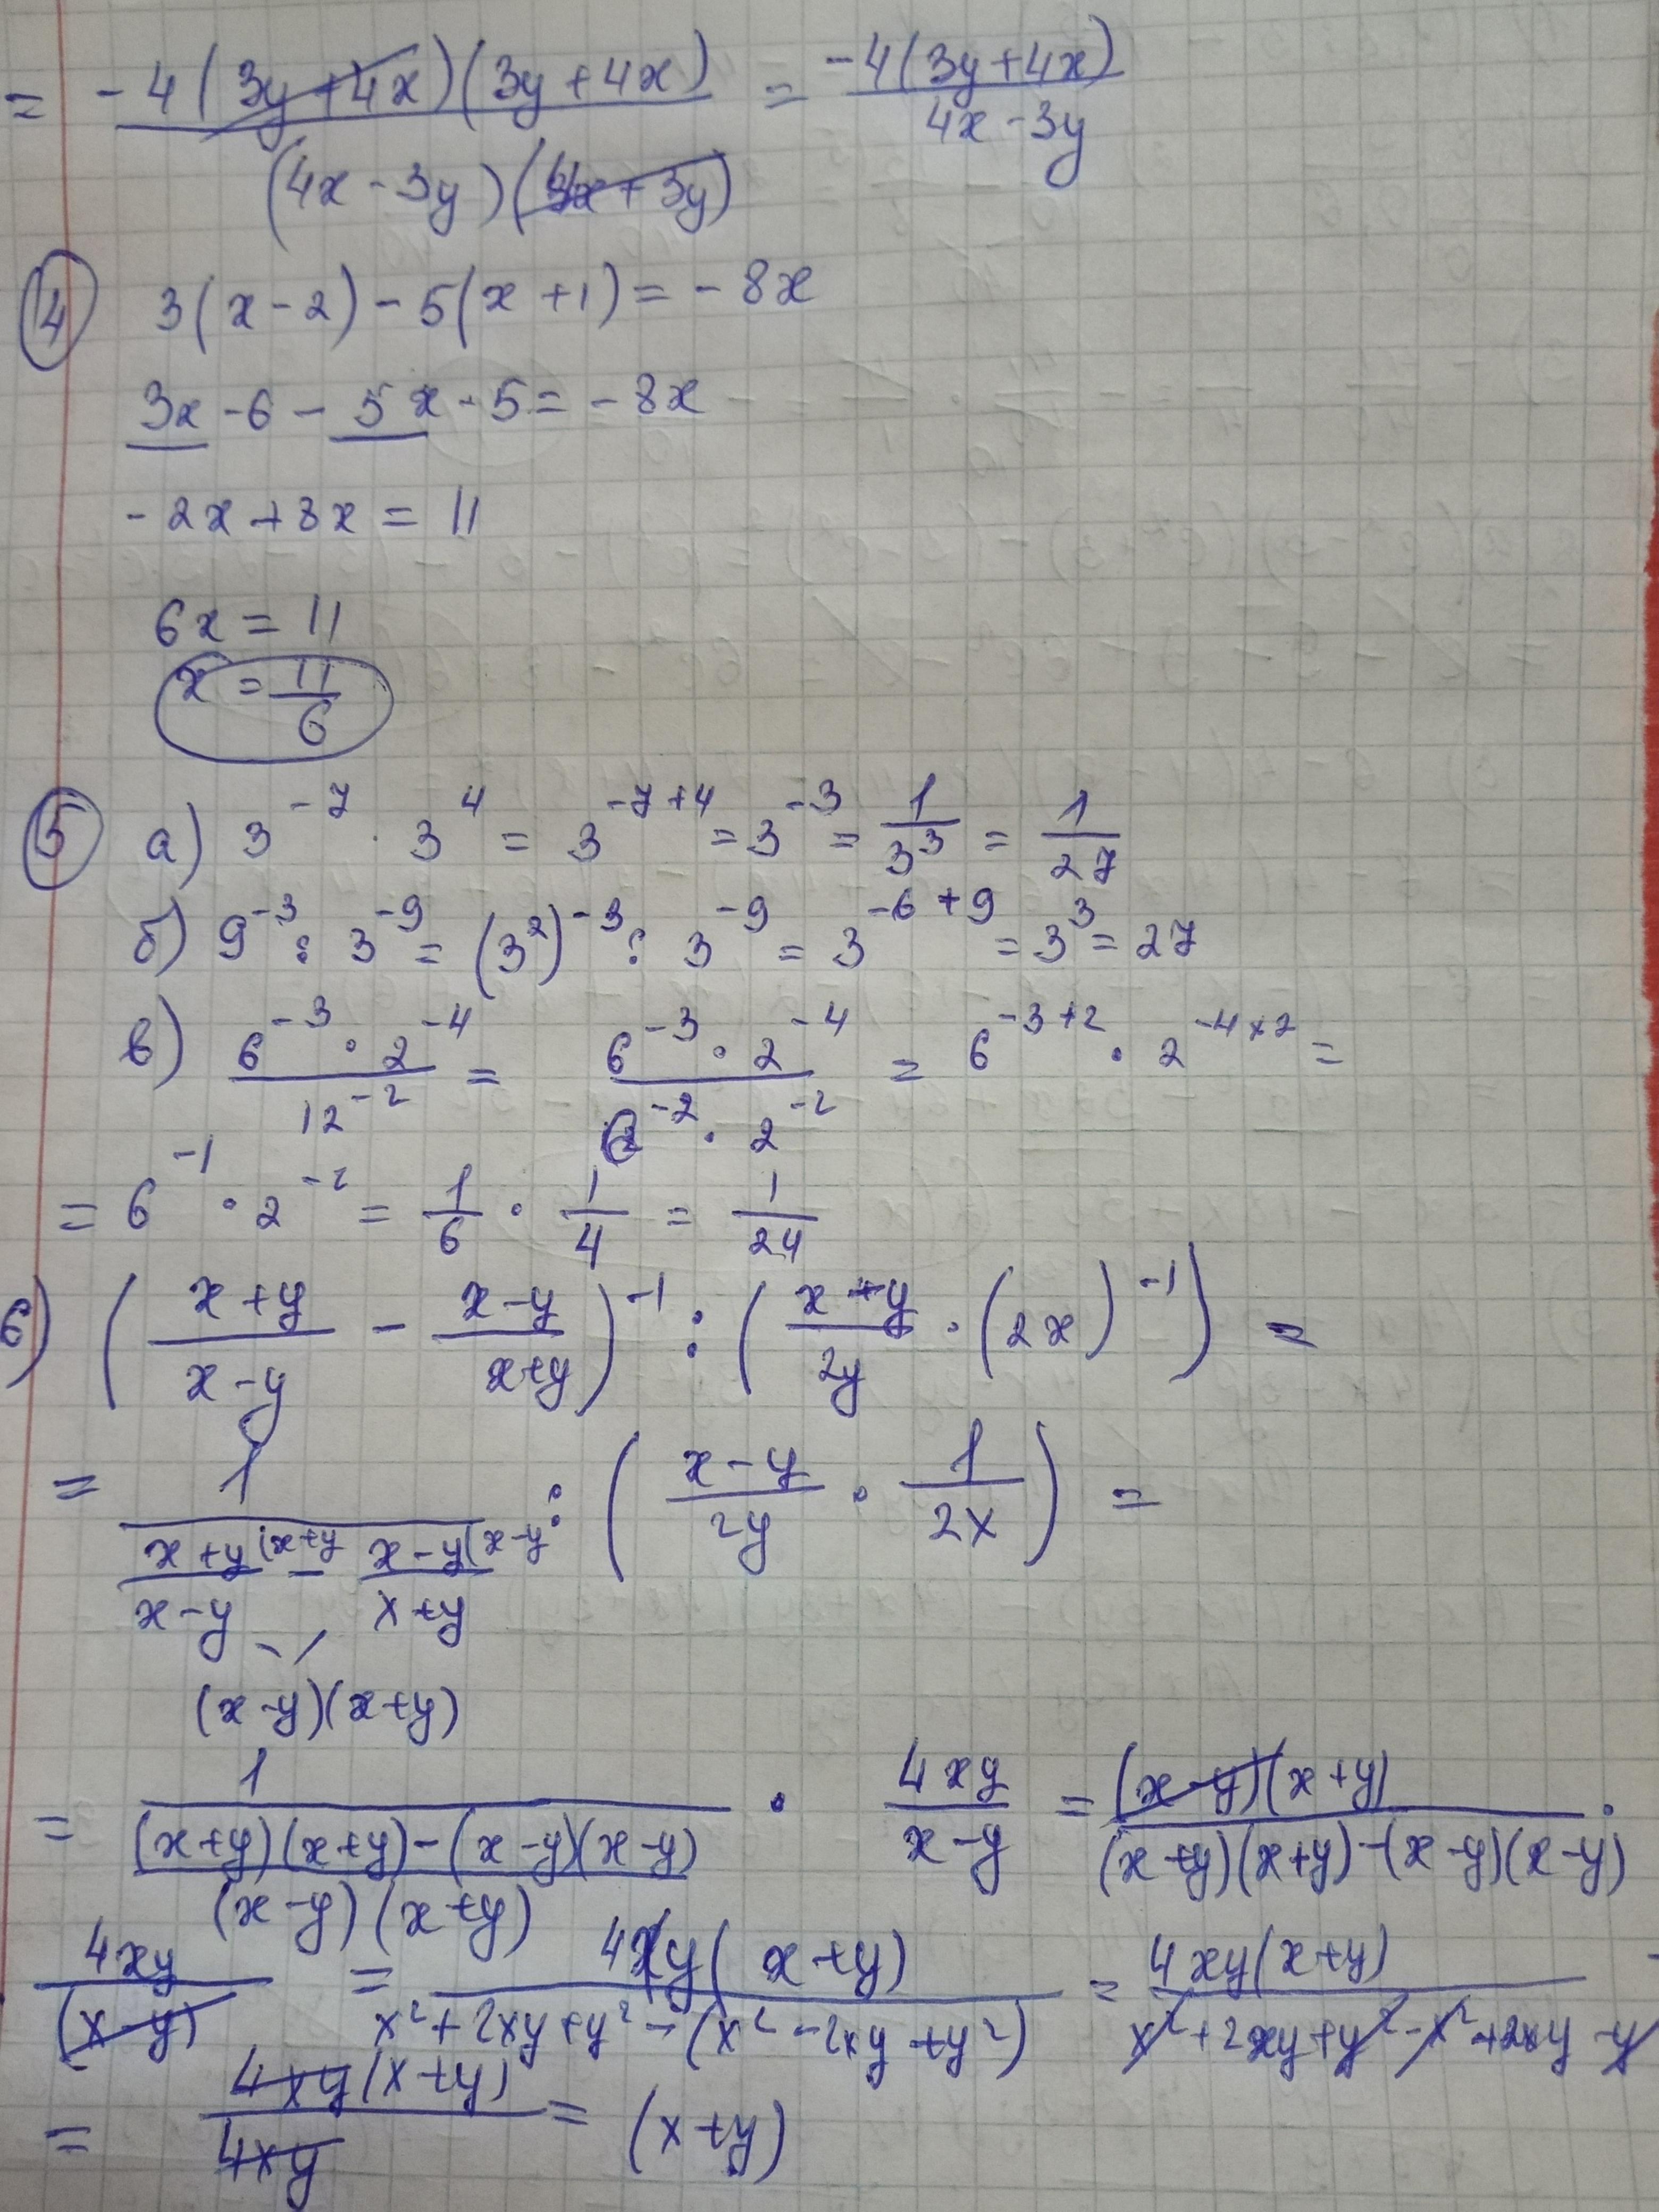 = -4(3y+4x)(3y+4x) / (4x-3y)(4x+3y) = -4(3y+4x) / 4x-3y
4 3(x-2)-5(x+1)=-8x
3x-6-5x-5=-8x
-2x+8x=11
6x=11
x=11/6
5 а) 3^-7 · 3^4 = 3^-7+4 = 3^-3 = 1/3^3 = 1/27
б) 9^-3 : 3^-9 = (3^2)^-3 : 3^-9 = 3^-6+9 = 3^3 = 27
в) 6^-3 · 2^-4 / 12^-2 = 6^-3 · 2^-4 / 6^-2 · 2^-2 = 6^-3+2 · 2^-4+2 =
= 6^-1 · 2^-2 = 1/6 · 1/4 = 1/24
6) (x+y / x-y - x-y / x+y)^-1 : (x+y / 2y · (2x)^-1) =
= 1 / (x+y(x+y / x-y - x-y(x-y / x+y) : (x-y / 2y · 1 / 2x) =
(x-y)(x+y)
= 1 / ((x+y)(x+y)-(x-y)(x-y) / (x-y)(x+y)) · 4xy / x-y = (x-y)(x+y) / (x+y)(x+y)-(x-y)(x-y) ·
4xy / (x-y) = 4xy(x+y) / x²+2xy+y²-(x²-2xy+y²) = 4xy(x+y) / x²+2xy+y²-x²+2xy-y
= 4xy(x+y) / 4xy = (x+y)